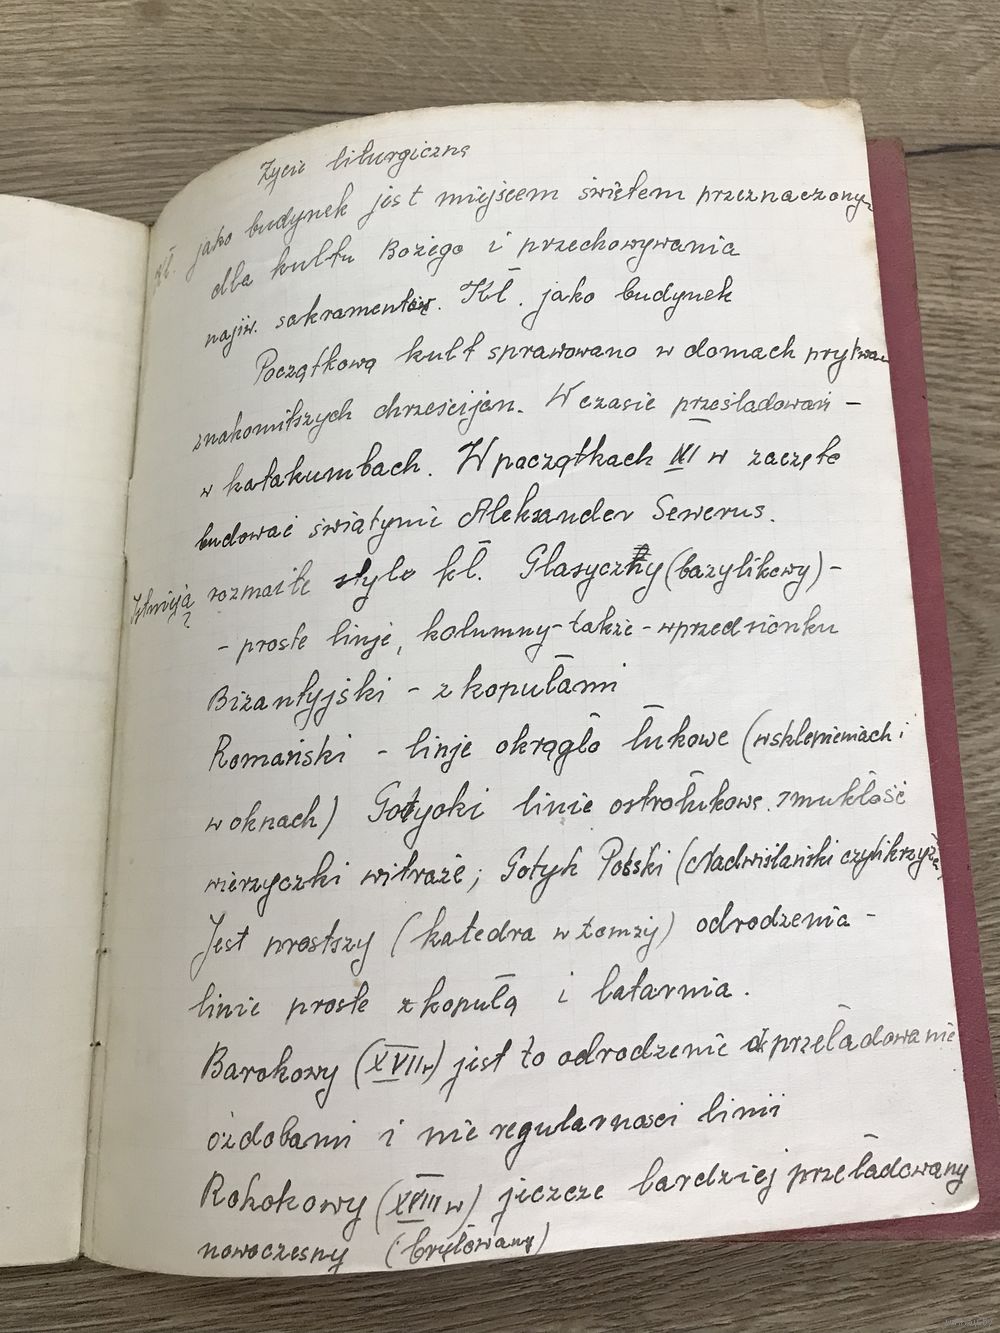 Życie liturgiczne
Kł. jako budynek jest miejscem świętem przeznaczonym
dla kultu Bożego i przechowywania
najśw. sakramentów. Kł. jako budynek
Początkową kult sprawowano w domach prywa
znakomitszych chrześcijan. W czasie prześladowań -
w katakumbach. W początkach III w zaczęto
budować świątynie Aleksander Sewerus.
Istnieją rozmaite style kł. Glasyczny (bazylikowy) -
- proste linje, kolumny - także - w przedsionku
Bizantyjski - z kopułami
Romański - linje okrągło łukowe (w sklepieniach i
w oknach) Gotycki linie ostrołukowe. smukłość
wierzyczki witraże; Gotyk Polski (Nadwiślański czyli krzyża
Jest prostszy (katedra w Łomży) odrodzenia -
linie proste z kopułą i latarnia.
Barokowy (XVII w) jest to odrodzenie przeładowanie
ozdobami i nie regularności linii
Rokokowy (XVIII w) jeszcze bardziej przeładowany
nowoczesny (bryłowany)